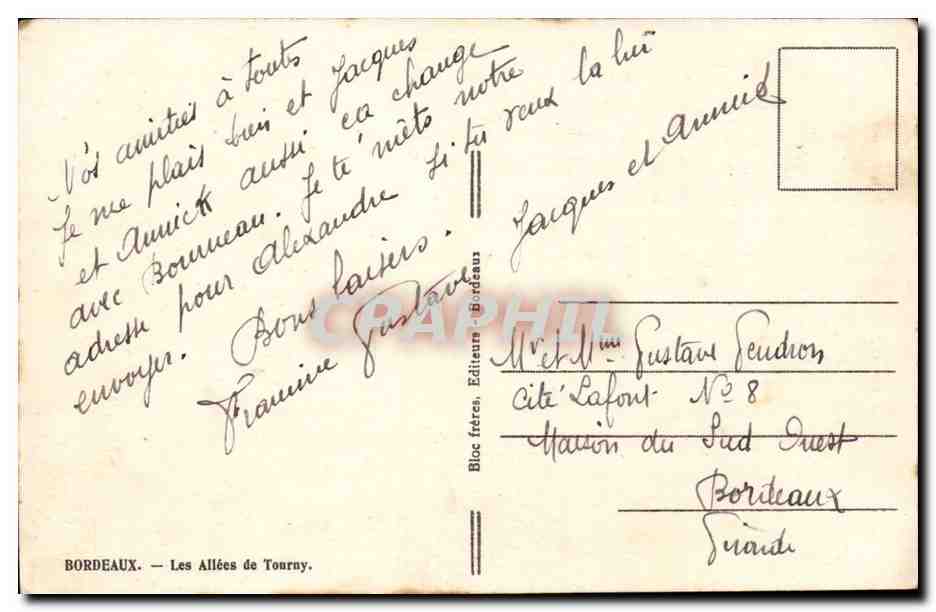 Nos amitiés à touts
Je me plais bien et Jacques
et Annick aussi ca change
avec Bourneau. Je te mets notre
adresse pour Alexandre si tu veux la lui
envoyer. Bons baisers.
Francine Gustave
Jacques et Annick
Mr et Mme Gustave Gendron
Cité Lafont No 8
Maison du Sud Ouest
Bordeaux
Gironde
Bloc frères, Editeurs Bordeaux
BORDEAUX. — Les Allées de Tourny.
CPAPHIL